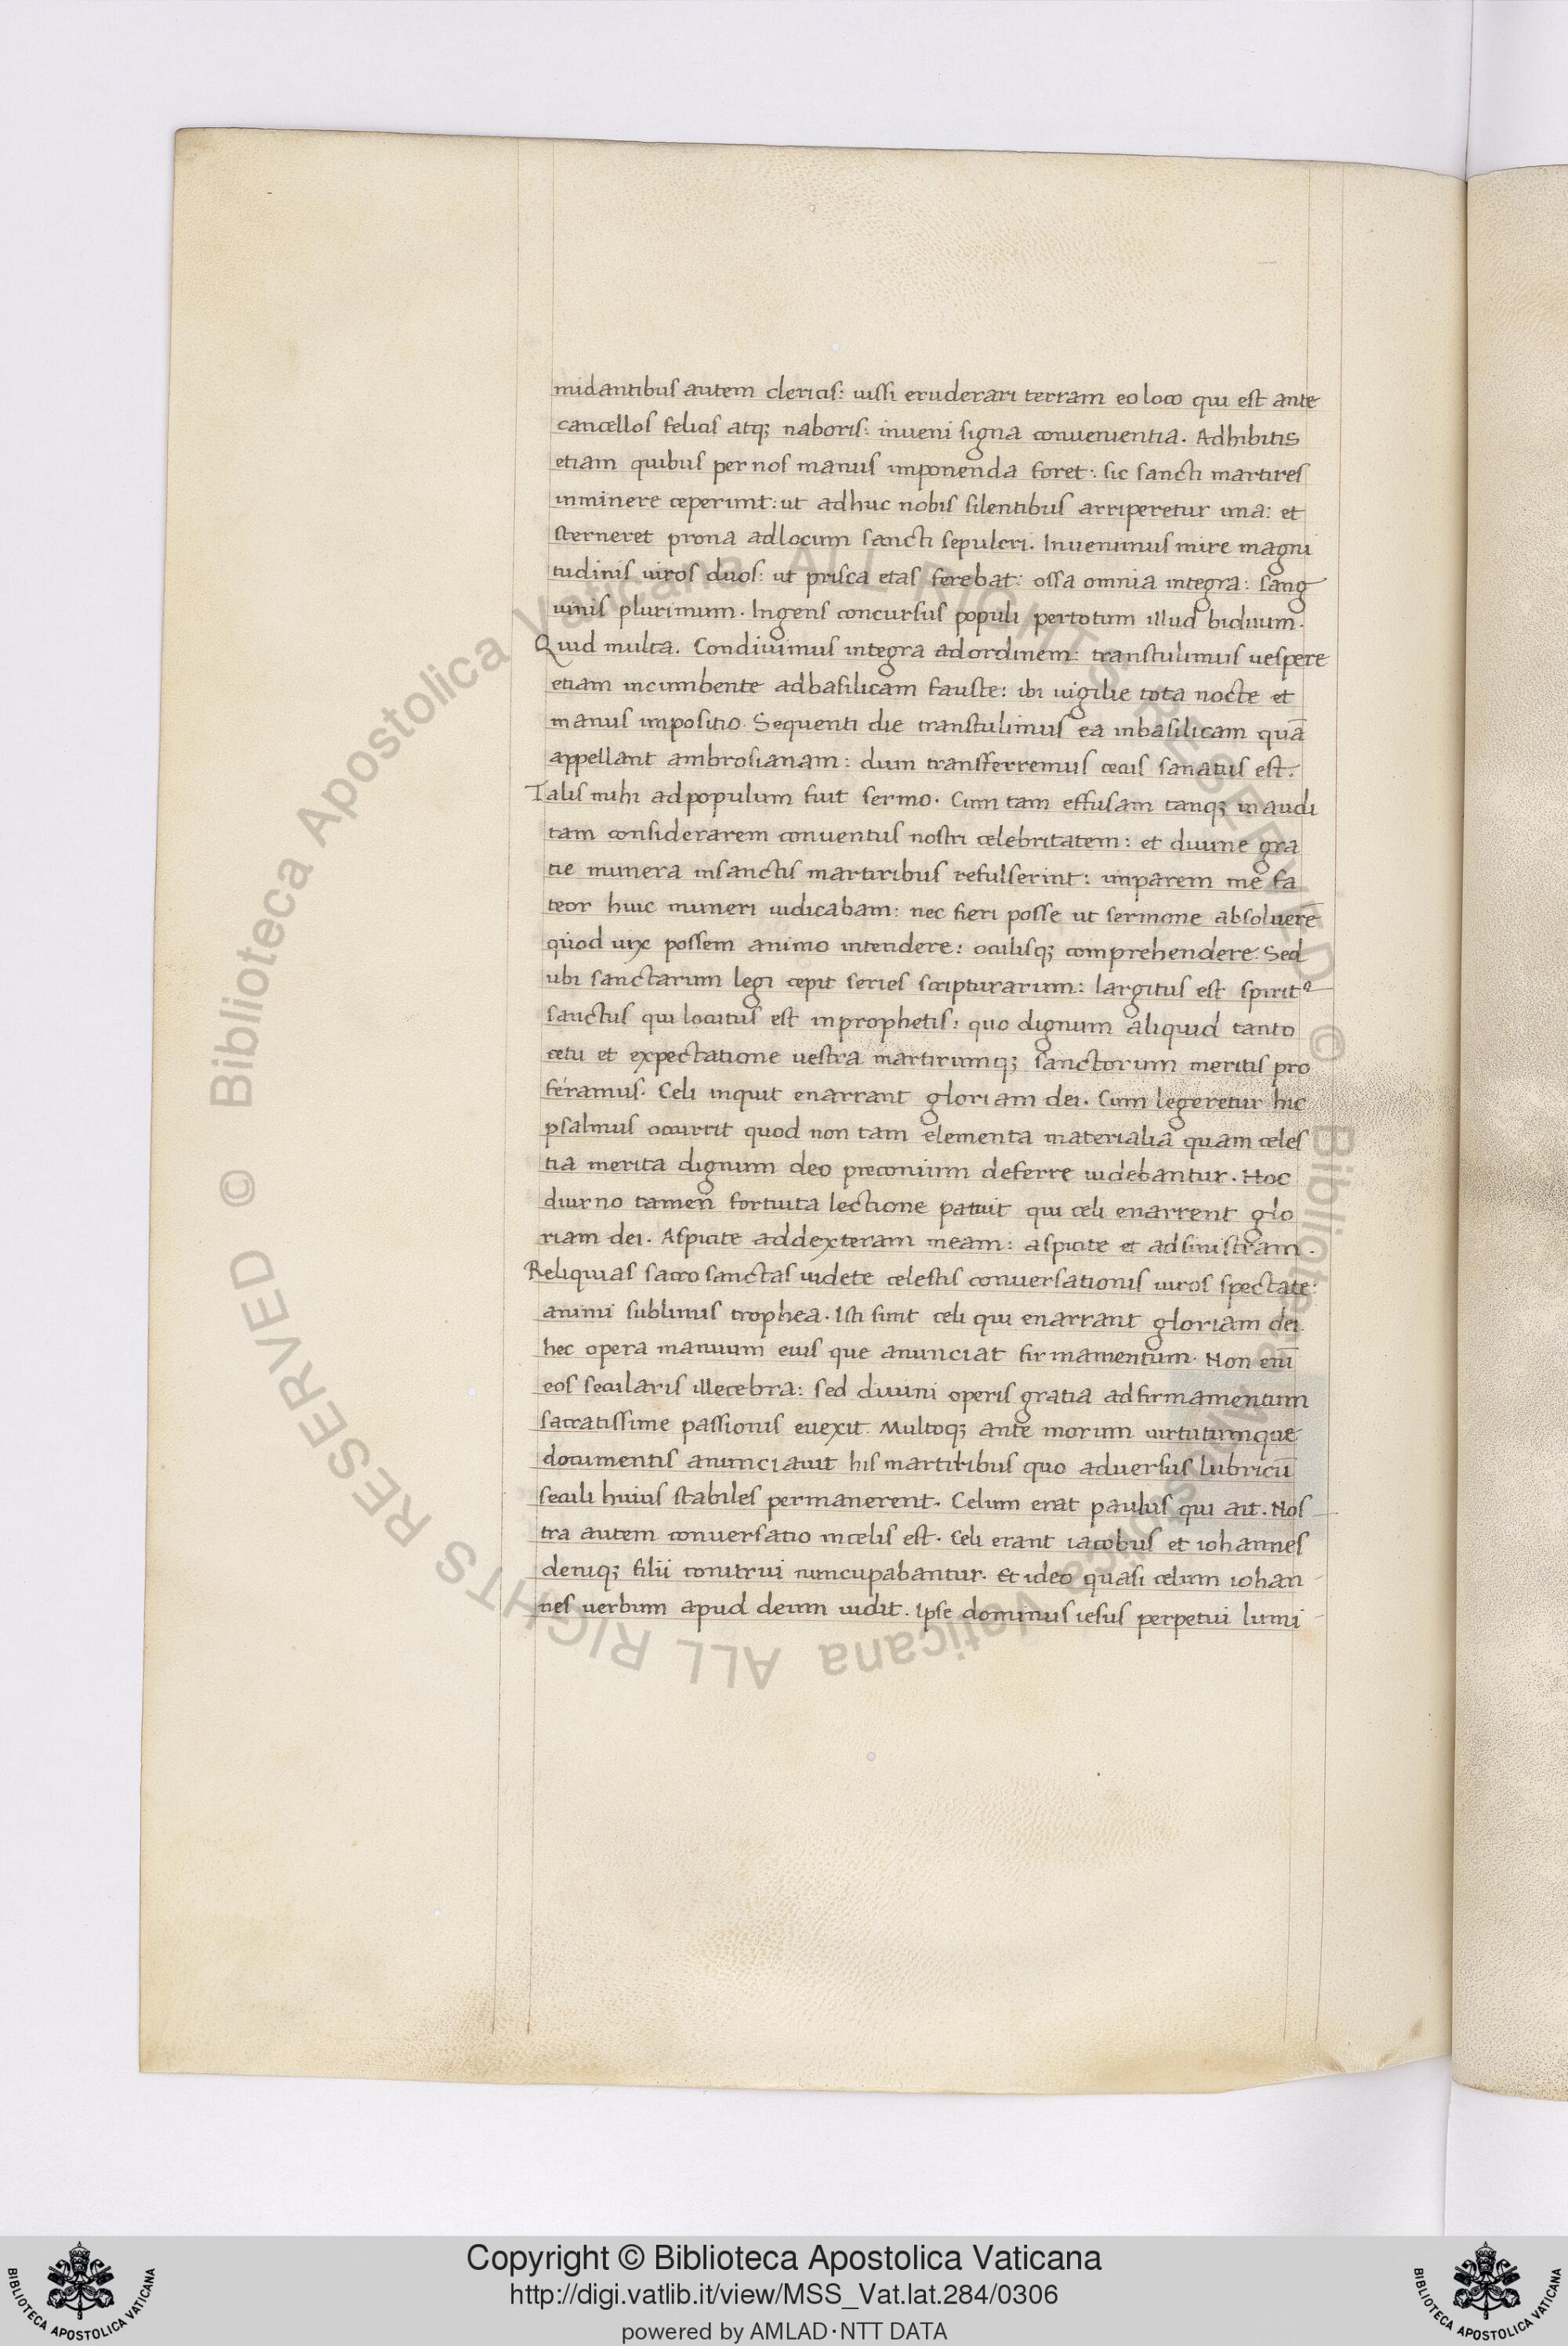 midantibus autem clericis: iussi eruderari terram eo loco qui est ante
cancellos felicis atq; naboris: inueni signa conuenientia. Adhibitis
etiam quibus per nos manus imponenda foret: sic sancti martires
inminere ceperunt: ut adhuc nobis silentibus arriperetur una: et
sterneret prona adlocum sancti sepulcri. Inuenimus mire magni
tudinis uiros duos: ut prisca etas ferebat: ossa omnia integra: sang
uinis plurimum. Ingens concursus populi pertotum illud biduum.
Quid multa. Condiuimus integra adordinem: transtulimus uespere
etiam incumbente adbasilicam fauste: ibi uigilie tota nocte et
manus impositio. Sequenti die transtulimus ea inbasilicam quā
appellant ambrosianam: dum transferremus cecus sanatus est.
Talis mihi adpopulum fuit sermo. Cum tam effusam tanq; inaudi
tam considerarem conuentus nostri celebritatem: et diuine gra
tie munera insanctis martiribus refulserint: imparem me fa
teor huic muneri iudicabam: nec fieri posse ut sermone absoluere
quod uix possem animo intendere: oculisq; comprehendere. Sed
ubi sanctarum legi cepit series scripturarum: largitus est spirit9
sanctus qui locutus est inprophetis: quo dignum aliquid tanto
cetu et expectatione uestra martirumq; sanctorum meritis pro
feramus. Celi inquit enarrant gloriam dei. Cum legeretur hic
psalmus occurrit quod non tam elementa materialia quam celes
tia merita dignum deo preconium deferre uidebantur. Hoc
diurno tamen fortuita lectione patuit qui celi enarrent glo
riam dei. Aspicite addexteram meam: aspicite et adsinistram.
Reliquias sacro sanctas uidete celestis conuersationis uiros spectate:
animi sublimis trophea. Isti sunt celi qui enarrant gloriam dei
hec opera manuum eius que anunciat firmamentum. Non eni̅
eos secularis illecebra: sed diuini operis gratia adfirmamentum
sacratissime passionis euexit. Multoq; ante morum uirtutumque
documentis anunciauit his martiribus quo aduersus lubricu̅
seculi huius stabiles permanerent. Celum erat paulus qui ait. Nos
tra autem conuersatio incelis est. Celi erant iacobus et iohannes
deniq; filii tonitrui nuncupabantur. Et ideo quasi celum iohan
nes uerbum apud deum uidit. Ipse dominus iesus perpetui lumi
© Biblioteca Apostolica Vaticana ALL RIGHTS RESERVED
© Biblioteca Apostolica Vaticana ALL RIGHTS RESERVED
Copyright © Biblioteca Apostolica Vaticana
http://digi.vatlib.it/view/MSS_Vat.lat.284/0306
powered by AMLAD·NTT DATA
BIBLIOTECA APOSTOLICA VATICANA
BIBLIOTECA APOSTOLICA VATICANA